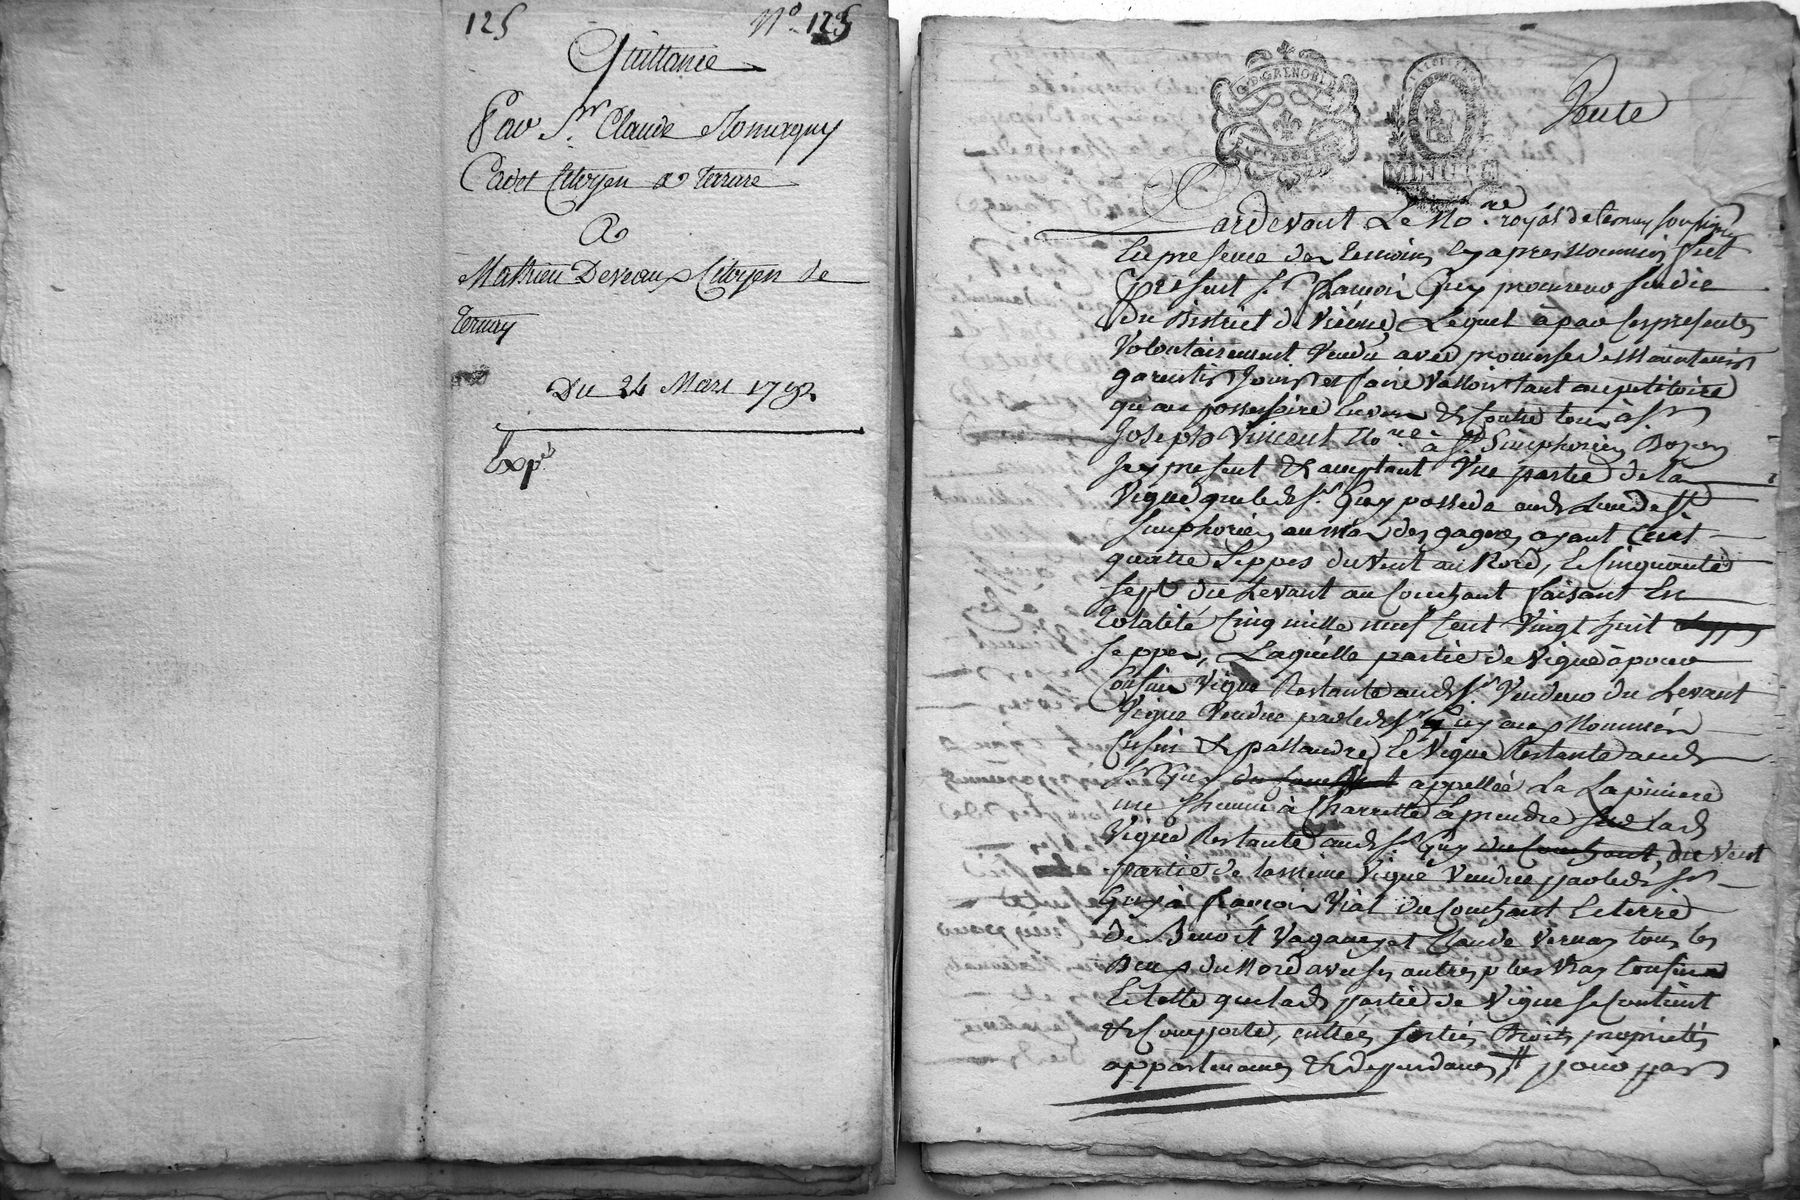 125 N° 125
Quittance
Par Sr. Claude
Cadet Citoyen a Tarare
A
Mathieu Devaux Citoyen de
Ternay
Du 24 Mars 1792
Exp.
G. D. GRENOBLE
LA LOI ET LE ROI
MINUTE
Vente
Pardevant Le No.re royal de Ternay soussigné
En presence des temoins cy apres nommés fut
present Sr. Guy procureur sindic
du District de Vienne, Lequel à par ces presentes
Volontairement Vendu avec promesse de Maintenir
garentir Jouir et faire Valloir tant au petitoire
qu'au possessoire Envers & contre tous à Sr
Joseph Vincent No.re à St Simphorien
Icy present & acceptant Une partie de la
Vigne que led. Sr. Guy possede aud. Lieu de St
Simphorien au mas des gagnes ayant Cent
quatre Seppes du Vent au Nord, & Cinquante
Sept du Levant au Couchant faisant En
totalité Cinq mille neuf Cent Vingt huit
Seppes, Laquelle partie de Vigne à pour
Confins Vigne Restante aud. Sr. Vendeur du Levant
Vigne Vendue par led. Sr Guy aux Nommés
& Vigne Restante aud.
Sr Guy appellée La Lapiniere
une Chemin à Charrette à prendre sur lad.
Vigne Restante aud. Sr. Guy du Couchant, du Vent
partie de la même Vigne Vendue par led. Sr
Guy à Vial du Couchant & terre
de Benoît et Claude tous les
Deux du Nord avec ses autres plus Vrais Confins
& telle que lad. partie de Vigne se Contient
& Comporte, entrées sorties Droits proprietés
appartenances & dependances, pour par